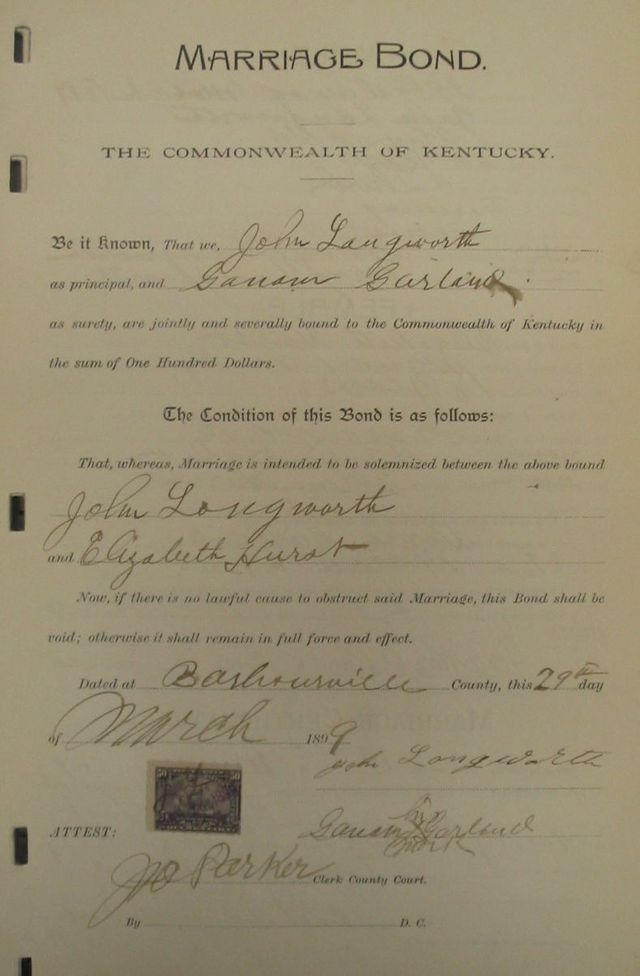 MARRIAGE BOND.
THE COMMONWEALTH OF KENTUCKY.
Be it Known, That we, John Longworth
as principal, and Ganaw Garland
as surety, are jointly and severally bound to the Commonwealth of Kentucky in
the sum of One Hundred Dollars.
The Condition of this Bond is as follows:
That, whereas, Marriage is intended to be solemnized between the above bound
John Longworth
and Elizabeth Hurst
Now, if there is no lawful cause to obstruct said Marriage, this Bond shall be
void; otherwise it shall remain in full force and effect.
Dated at Barbourville County, this 29th day
of March 1899
John Longworth
50 50
ATTEST: Ganaw his x mark Garland
Jo Parker Clerk County Court.
By D. C.